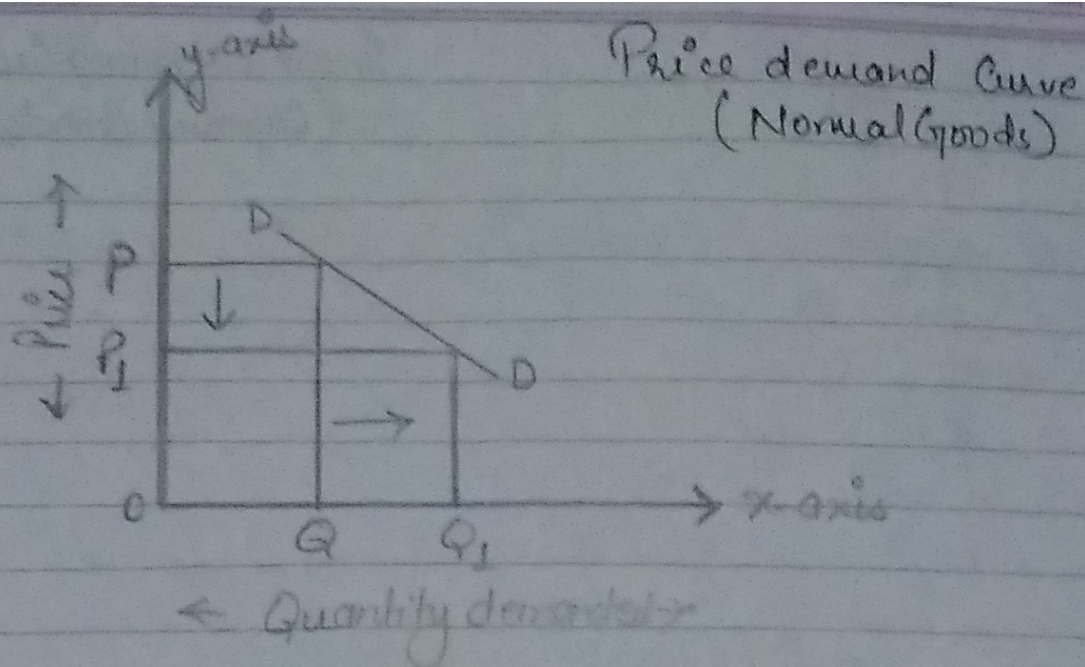 y-axis
Price demand Curve
(Normal Goods)
D
P
← Price →
P1
D
O
x-axis
Q Q1
← Quantity demanded →